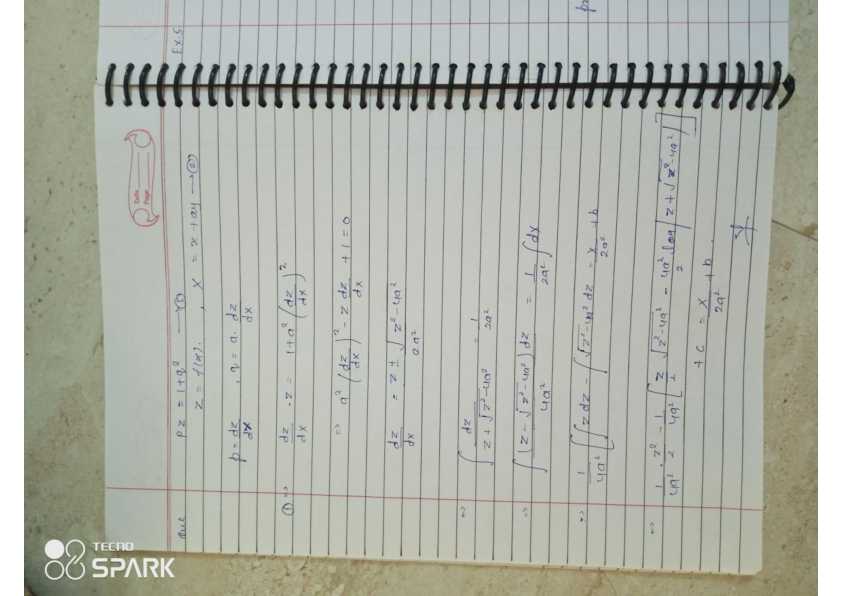 Ex-5
Date
Page
Que pz = 1+q² —(1)
z = f(x). , X = x + ay —(2)
p = dz/dx , q = a. dz/dx
(1) ⇒ dz/dx . z = 1+a² (dz/dx)²
⇒ a² (dz/dx)² - z dz/dx + 1 = 0
dz/dx = z ± √z²-4a² / 2a²
⇒ ∫ dz / z + √z²-4a² = 1/2a²
⇒ ∫ (z - √z²-4a²) dz / 4a² = 1/2a² ∫ dx
⇒ 1/4a² [∫ z dz - ∫ √z²-4a² dz = x/2a² + b
⇒ 1/4a² . z²/2 - 1/4a² [z/2 √z²-4a² - 4a²/2 log[z + √z²-4a²]]
+ c = x/2a² + b.
TECNO
SPARK